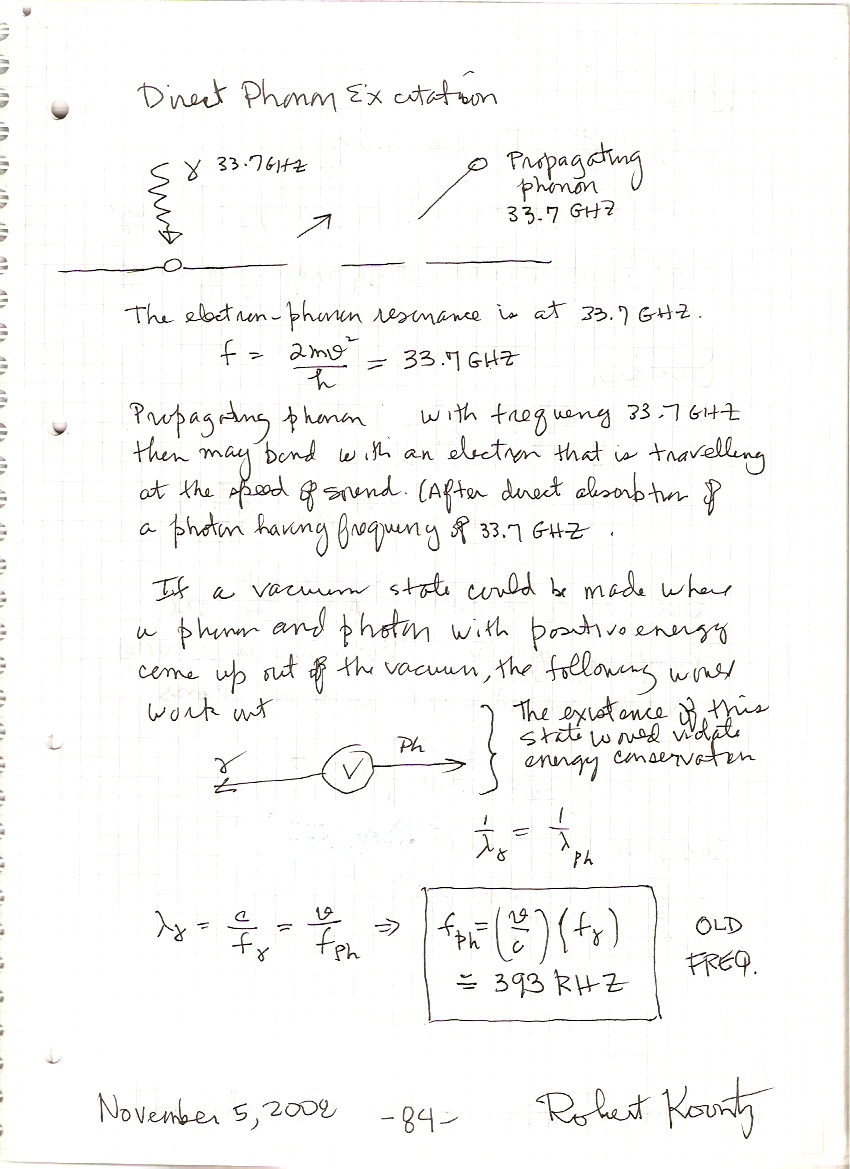 Direct Phonon Excitation
γ 33.7 GHZ
Propagating
phonon
33.7 GHZ
The electron-phonon resonance is at 33.7 GHZ.
f = 2mv²/h = 33.7 GHZ
Propagating phonon with frequency 33.7 GHZ
then may bond with an electron that is travelling
at the speed of sound. (After direct absorbtion of
a photon having frequency of 33.7 GHZ .
If a vacuum state could be made where
a phonon and photon with positive energy
come up out of the vacuum, the following would
work out
The existence of this
state would violate
energy conservation
γ V Ph
1/λγ = 1/λph
λγ = c/fγ = v/fph ⇒ fph = (v/c)(fγ)
≅ 393 KHZ
OLD
FREQ.
November 5, 2002 -84- Robert Koontz